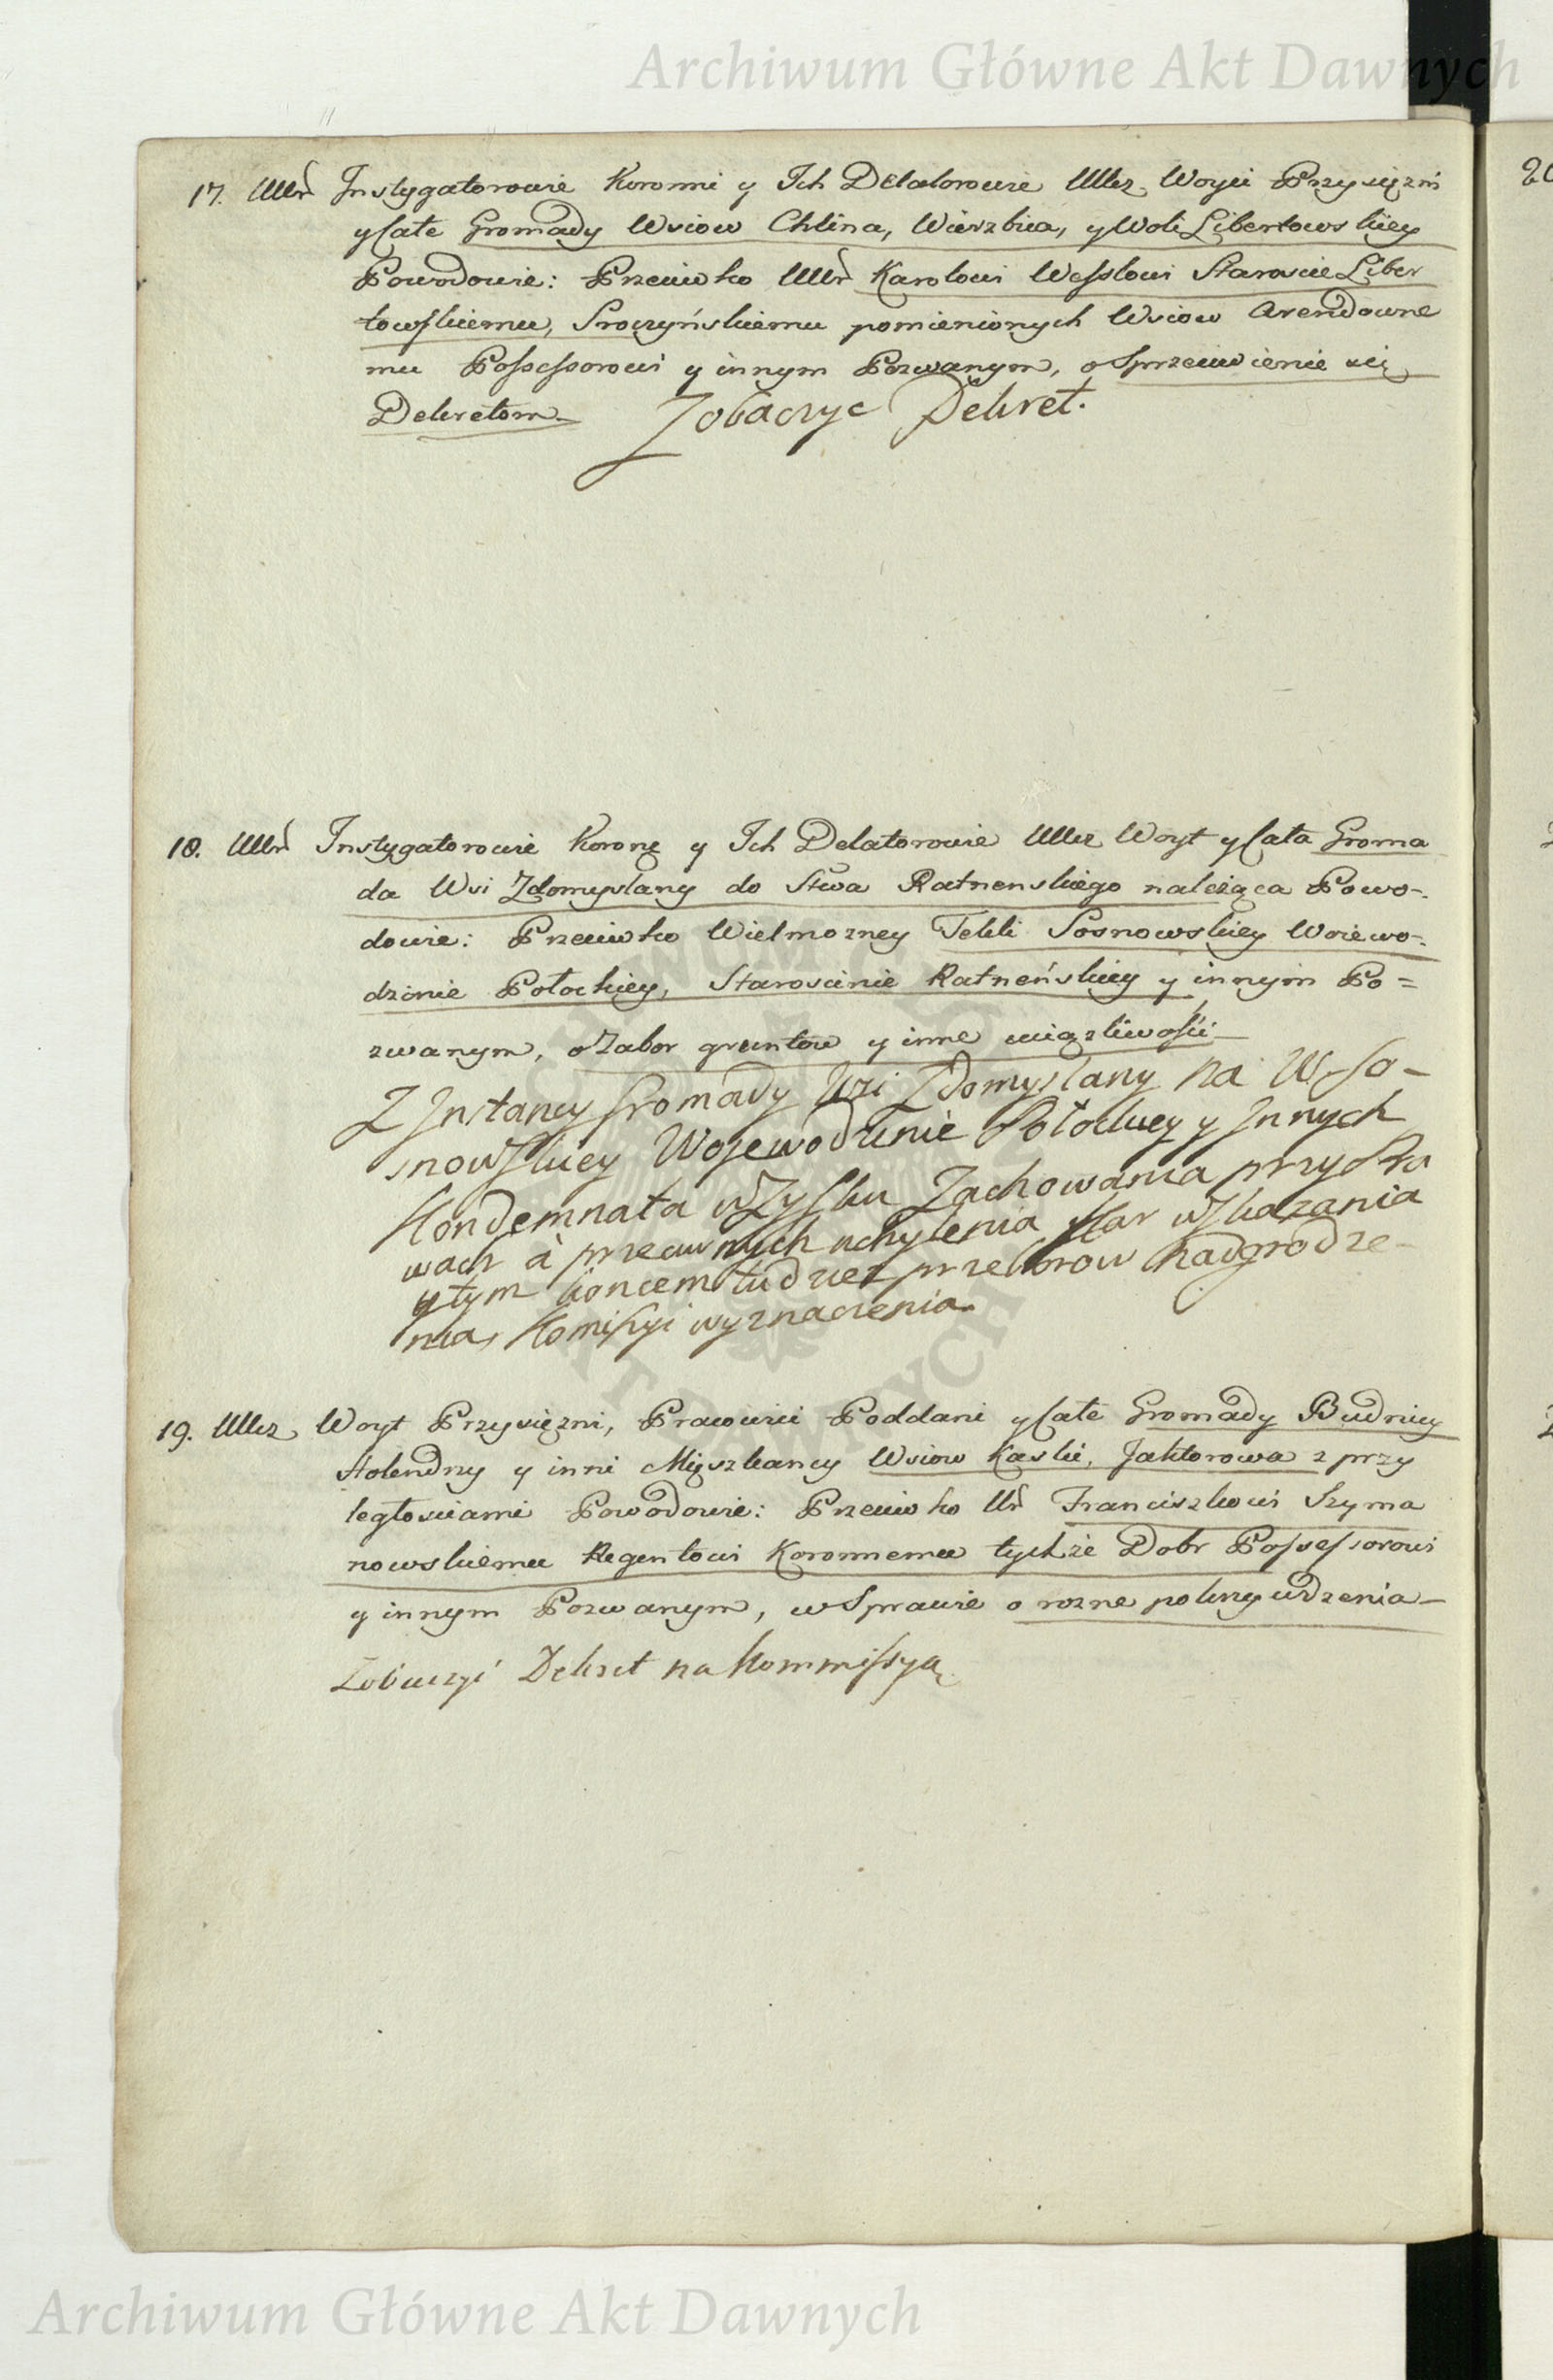 Archiwum Główne Akt Dawnych
17. UUr Instygatorowie Koronni y Ich Delatorowie UUcz. Woyci Przysiężni
y Całe Gromady Wsiow Chlina, Wierzbica, y Woli Libertowskiey
Powodowie: Przeciwko UUr Karolowi Wesslowi Staroscie Liber
towskiemu, Sroczyńskiemu pomienionych Wsiow Arendowne
mu Possessorowi y innym Pozwanym, o Sprzeciwienie się
Dekretom. Zobaczyc Dekret.
18. UUr Instygatorowie Koronę y Ich Delatorowie UUcz Woyt y Cała Groma
da Wsi Zdomyslany do Stwa Ratnenskiego należąca Powo-
dowie: Przeciwko Wielmozney Tekli Sosnowskiey Woiewo-
dzinie Połockiey, Starościnie Ratneńskiey y innym Po=
zwanym, o Zabor gruntow y inne uciązliwości
Z Instancy Gromady Wsi Zdomyslany na W. So-
snowskiey Wojewodzinie Połockiey y Innych
Kondemnata w Zysku Zachowania przy Pra
wach à przeciwnych uchylenia Kar wskazania
y tym koncem tudziez przeborow nadgrodze-
nia, Komissyi wyznaczenia.
19. UUcz Woyt Przysięzni, Prawowici Poddani y Całe Gromady Budnicy
Holendrzy y inni Mięszkancy Wsiow Kaski, Jaktorowa z przy
ległosciami Powodowie: Przeciwko Ur Franciszkowi Szyma
nowskiemu Regentowi Koronnemu tychże Dobr Possessorowi
y innym Pozwanym, w Sprawie o rozne pokrzywdzenia
Zobaczyć Dekret na Kommissyą.
Archiwum Główne Akt Dawnych